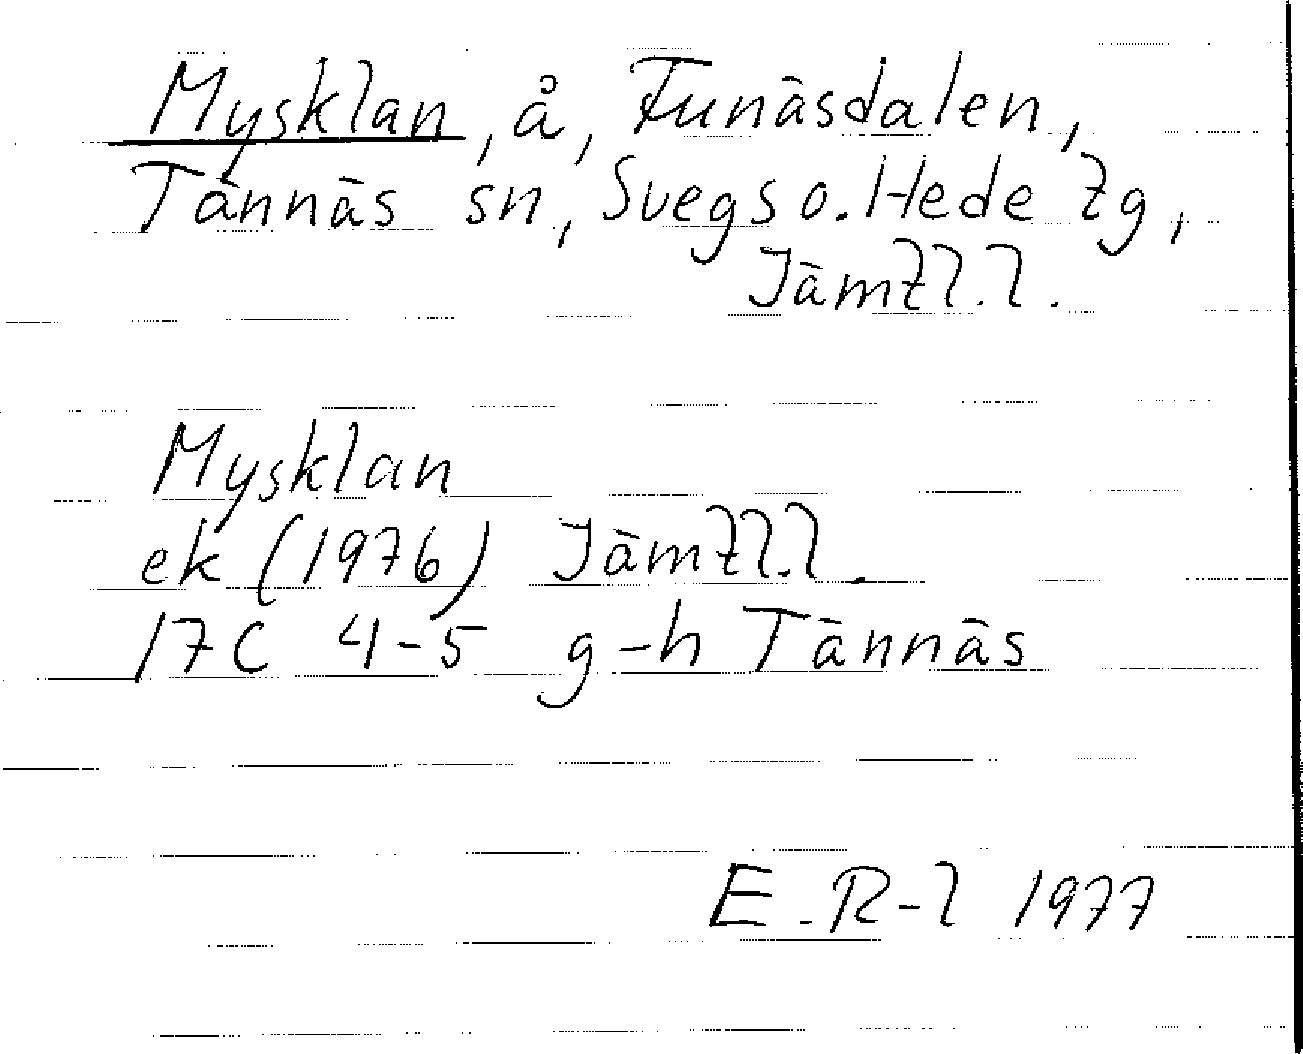 Mysklan, å, Funäsdalen,
Tännäs sn, Svegs o. Hede tg,
Jämtl. l.
Mysklan
ek (1976) Jämtl. l.
17C 4-5 g-h Tännäs
E. R-l 1977